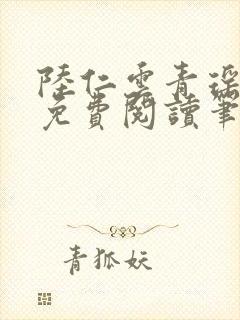 陸仁雲青瑤
免費閱讀筆
青狐妖